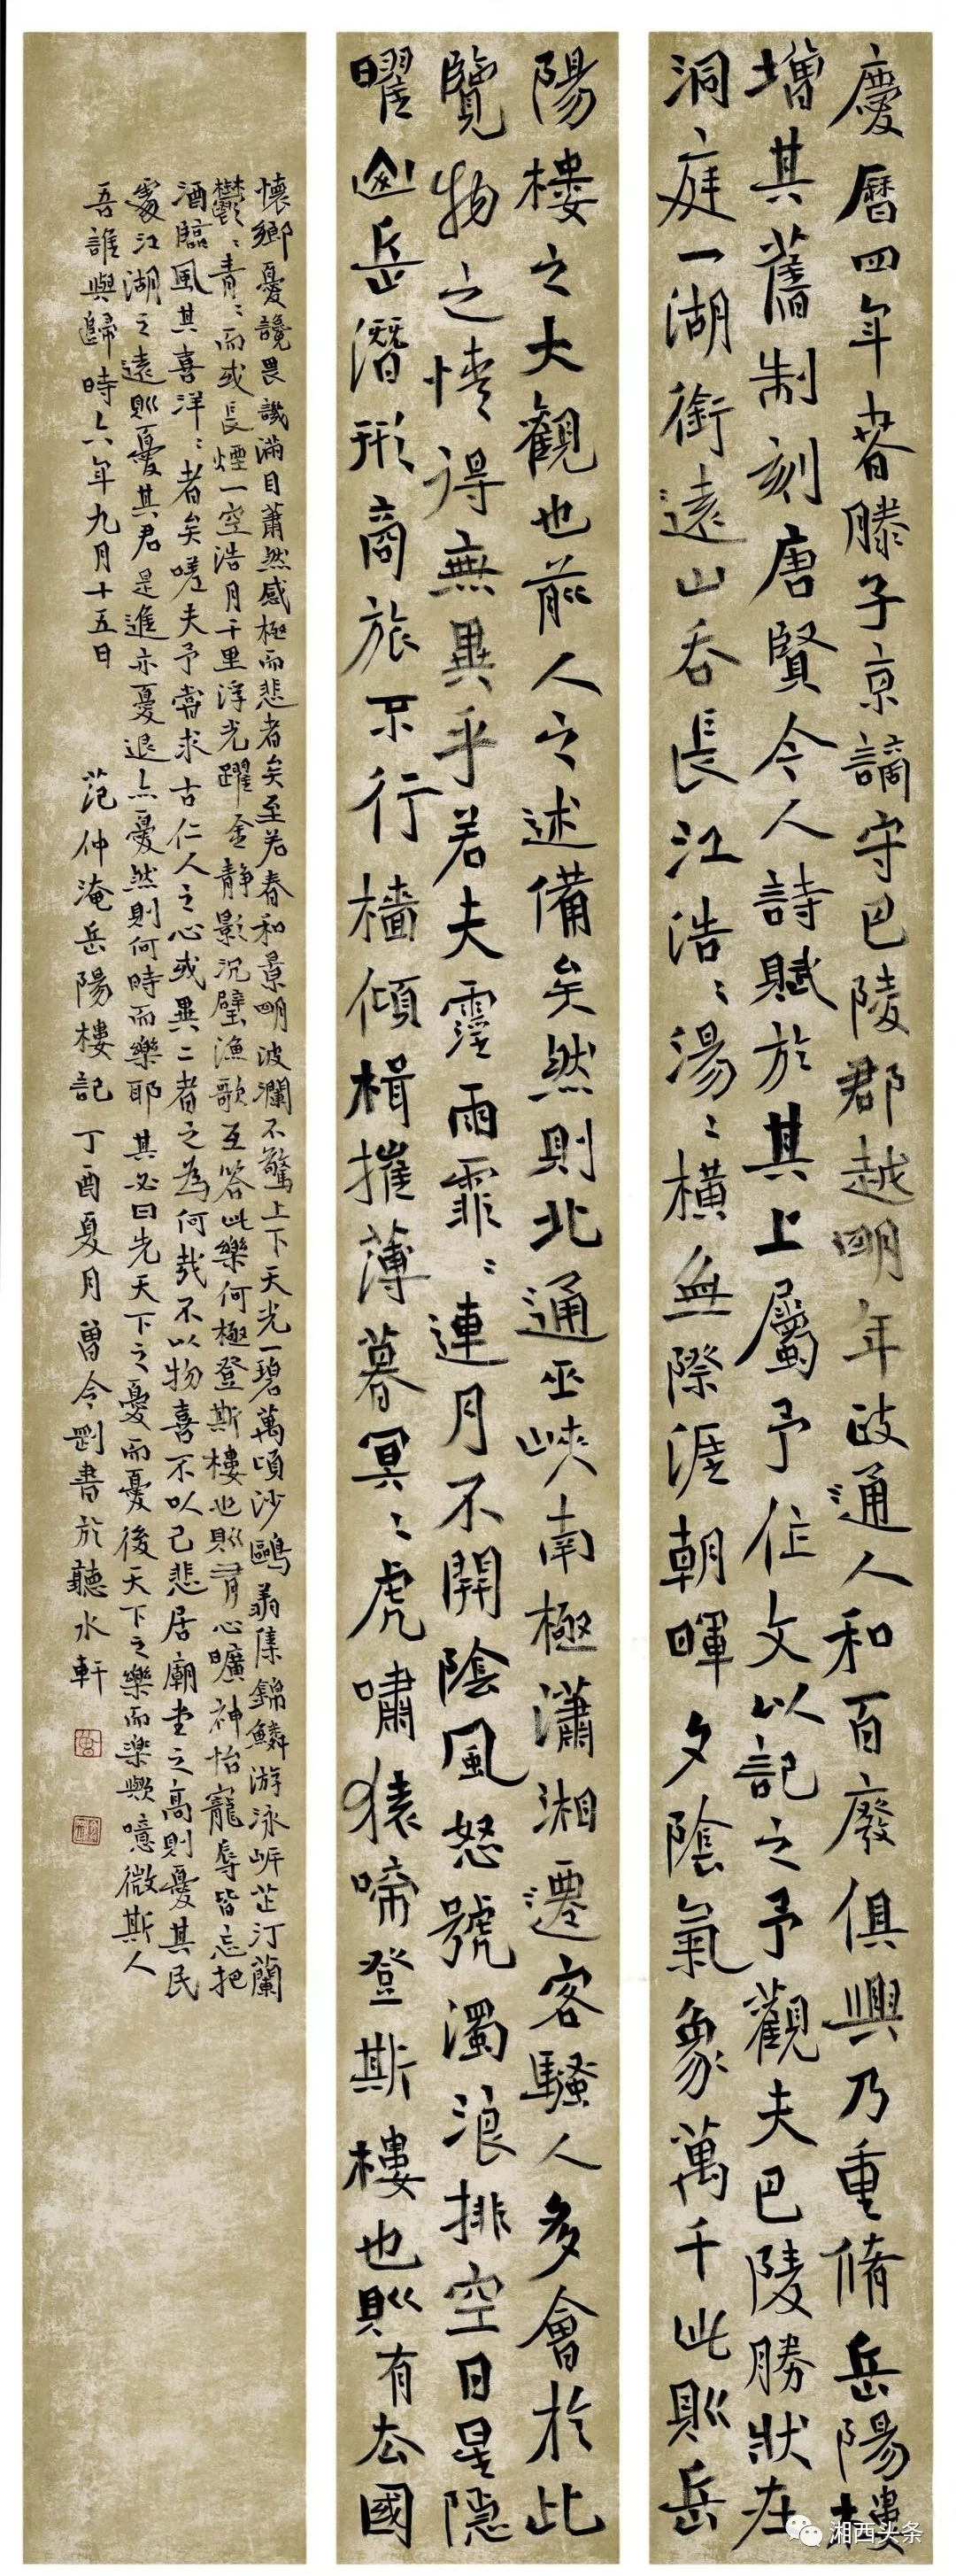 慶曆四年春滕子京謫守巴陵郡越明年政通人和百廢俱興乃重脩岳陽樓
增其舊制刻唐賢今人詩賦於其上屬予作文以記之予觀夫巴陵勝狀在
洞庭一湖銜遠山吞長江浩〻湯〻橫無際涯朝暉夕陰氣象萬千此則岳
陽樓之大觀也前人之述備矣然則北通巫峽南極瀟湘遷客騷人多會於此
覽物之情得無異乎若夫霪雨霏〻連月不開陰風怒號濁浪排空日星隱
曜山岳潛形商旅不行檣傾楫摧薄暮冥〻虎嘯猿啼登斯樓也則有去國
懷鄉憂讒畏譏滿目蕭然感極而悲者矣至若春和景明波瀾不驚上下天光一碧萬頃沙鷗翔集錦鱗游泳岸芷汀蘭
鬱〻青〻而或長煙一空浩月千里浮光躍金靜影沉璧漁歌互答此樂何極登斯樓也則有心曠神怡寵辱皆忘把
酒臨風其喜洋〻者矣嗟夫予嘗求古仁人之心或異二者之為何哉不以物喜不以己悲居廟堂之高則憂其民
處江湖之遠則憂其君是進亦憂退亦憂然則何時而樂耶其必曰先天下之憂而憂後天下之樂而樂歟噫微斯人
吾誰與歸時六年九月十五日 范仲淹岳陽樓記 丁酉夏月曾令書於聽水軒
湘西头条